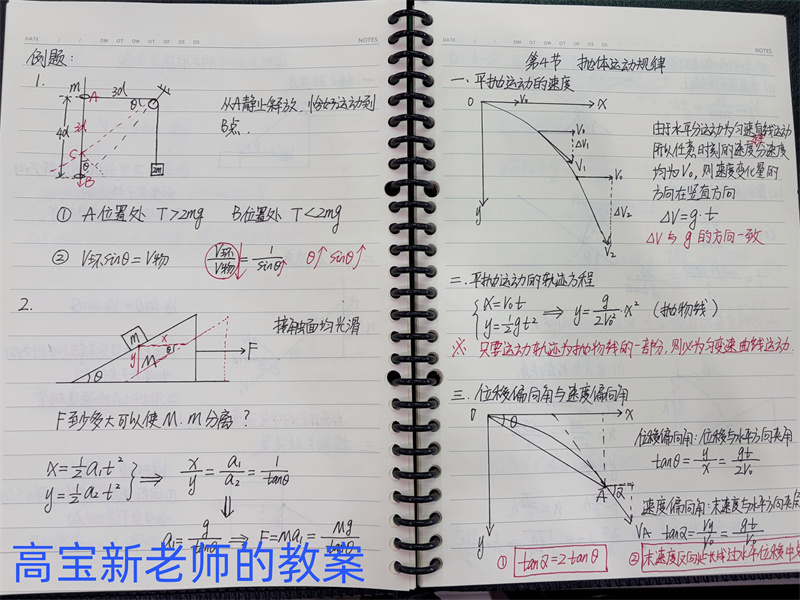 DATE
NOTES
例题:
1.
m
A
3d
θ
4d
3d
C
θ
B
2m
从A静止释放,恰好运动到
B点.
① A位置处 T>2mg B位置处 T<2mg
② V环sinθ=V物 V环/V物=1/sinθ↑ θ↑ sinθ↑
2.
m
x
y
M
θ
θ
F
接触面均光滑
F至少多大可以使M.m分离?
x=½a₁t²
y=½a₂t²
⇒ x/y=a₁/a₂=1/tanθ
⇓
a₁=g/tanθ ⇒ F=Ma₁=Mg/tanθ
高宝新老师的教案
DATE
NOTES
第4节 抛体运动规律
一.平抛运动的速度
O
V₀
x
V₀
ΔV₁
V₁
V₀
ΔV₂
V₂
y
由于水平分运动为匀速直线运动
所以任意时刻的速度分速度
均为V₀,则速度变化量的
方向在竖直方向
ΔV=g·t
ΔV与g的方向一致
二.平抛运动的轨迹方程
x=V₀t
y=½gt²
⇒ y=g/2V₀²·x² (抛物线)
※ 只要运动轨迹为抛物线的一部分,则必为匀变速曲线运动.
三.位移偏向角与速度偏向角
O
θ
x
A
α
VA
y
位移偏向角:位移与水平方向夹角
tanθ=y/x=gt/2V₀
速度偏向角:末速度与水平方向夹角
tanα=Vy/V₀=gt/V₀
① tanα=2tanθ
② 末速度反向延长线过水平位移中点